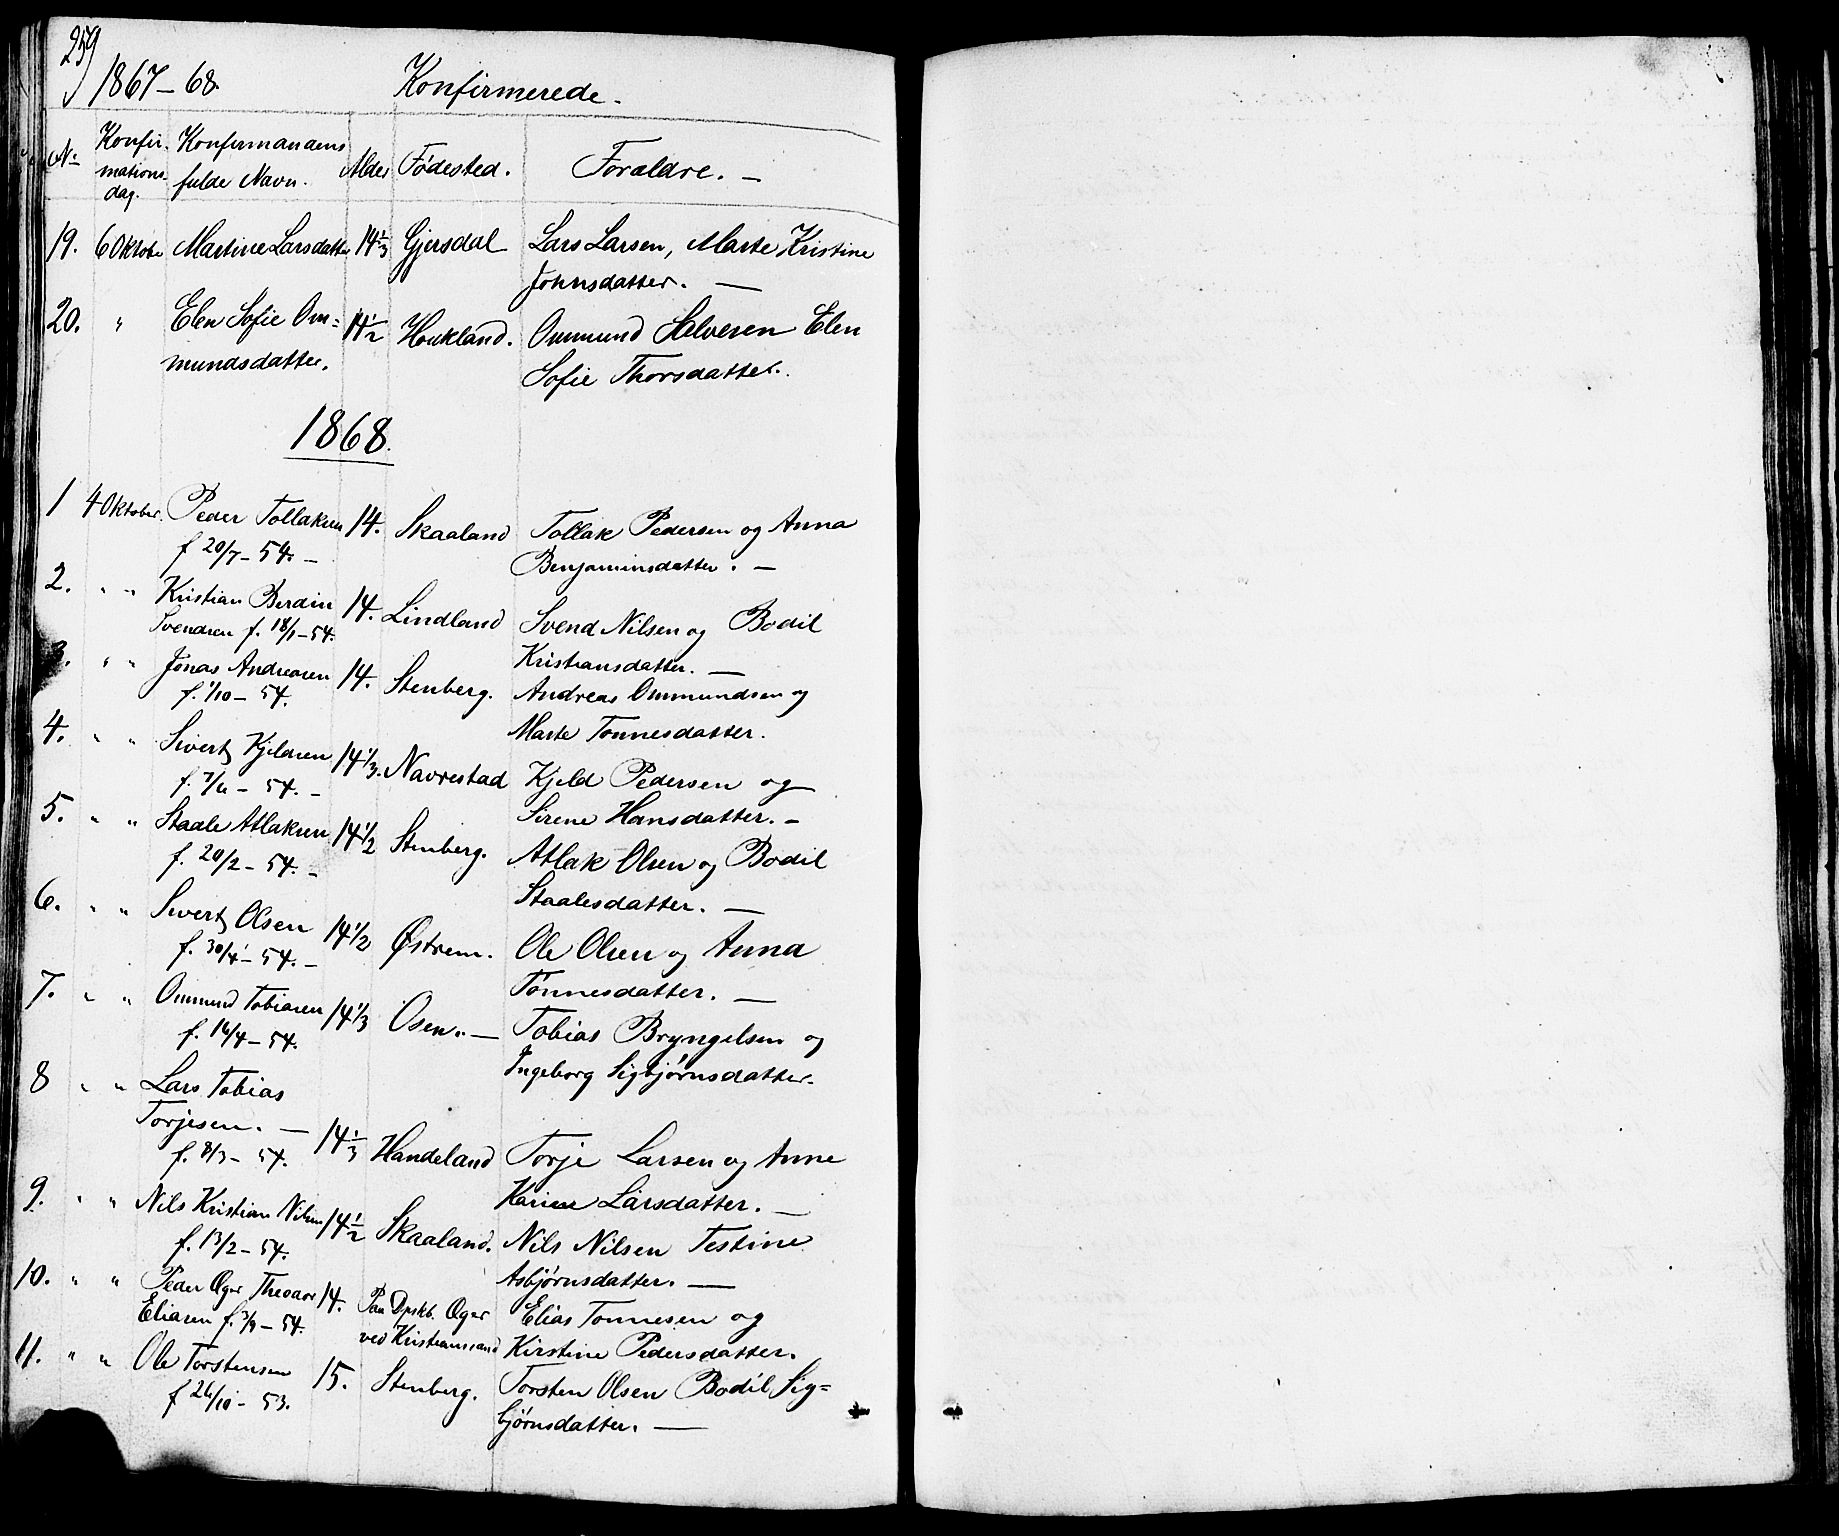 259
1867–68. Konfirmerede.
No Konfir- mations dag. Konfirmandens fulde Navn. Alder Fødested. Forældre. –
19. 6 Oktobr Martine Larsdatter 14 1/3 Gjersdal Lars Larsen, Marte Kristine
Johnsdatter. —
20. " Elen Sofie Om= 14 1/2 Houkland. Ommund Salvesen Elen
mundsdatter. Sofie Thorsdatter.
1868.
1 4 Oktober. Peder Tollaksen 14. Skaaland Tollak Pedersen og Anna
f 20/7 – 54. – Benjaminsdatter. —
2. " " Kristian Berdin 14. Lindland Svend Nilsen og Bodil
Svendsen f. 18/1 – 54. Kristiansdatter. —
3. " " Jonas Andreasen 14. Stenberg. Andreas Ommundsen og
f. 1/10 – 54. Marte Tonnesdatter.
4. " " Sivert Kjeldsen 14 1/3. Navrestad Kjeld Pedersen og
f. 7/6 – 54. – Sirene Hansdatter. –
5. " " Staale Atlaksen 14 1/2 Stenberg. Atlak Olsen og Bodil
f. 20/2 – 54. – Staalesdatter. —
6. " " Sivert Olsen 14 1/2 Østrem. Ole Olsen og Anna
f. 30/4 – 54. – Tönnesdatter. —
7. " " Ommund Tobiasen 14 1/3 Osen. — Tobias Bryngelsen og
f. 16/4 – 54. Ingeborg Sigbjørnsdatter.
8 " " Lars Tobias
Torjesen. — 14 1/3 Handeland Torje Larsen og Anne
f. 8/3 – 54. Karine Larsdatter. —
9. " " Nils Kristian Nilsen 14 1/2 Skaaland. Nils Nilsen Testine
f. 13/2 – 54. Asbjørnsdatter. —
10. " " Peder Oger Theodor 14. Paa Dpskb. Oger Elias Tonnesen og
Eliasen f. 3/9 – 54. ved Kristianssand Kirstine Pedersdatter.
11. " " Ole Torstensen 15. Stenberg. Torsten Olsen Bodil Sig=
f 26/10 – 53. bjørnsdatter. —